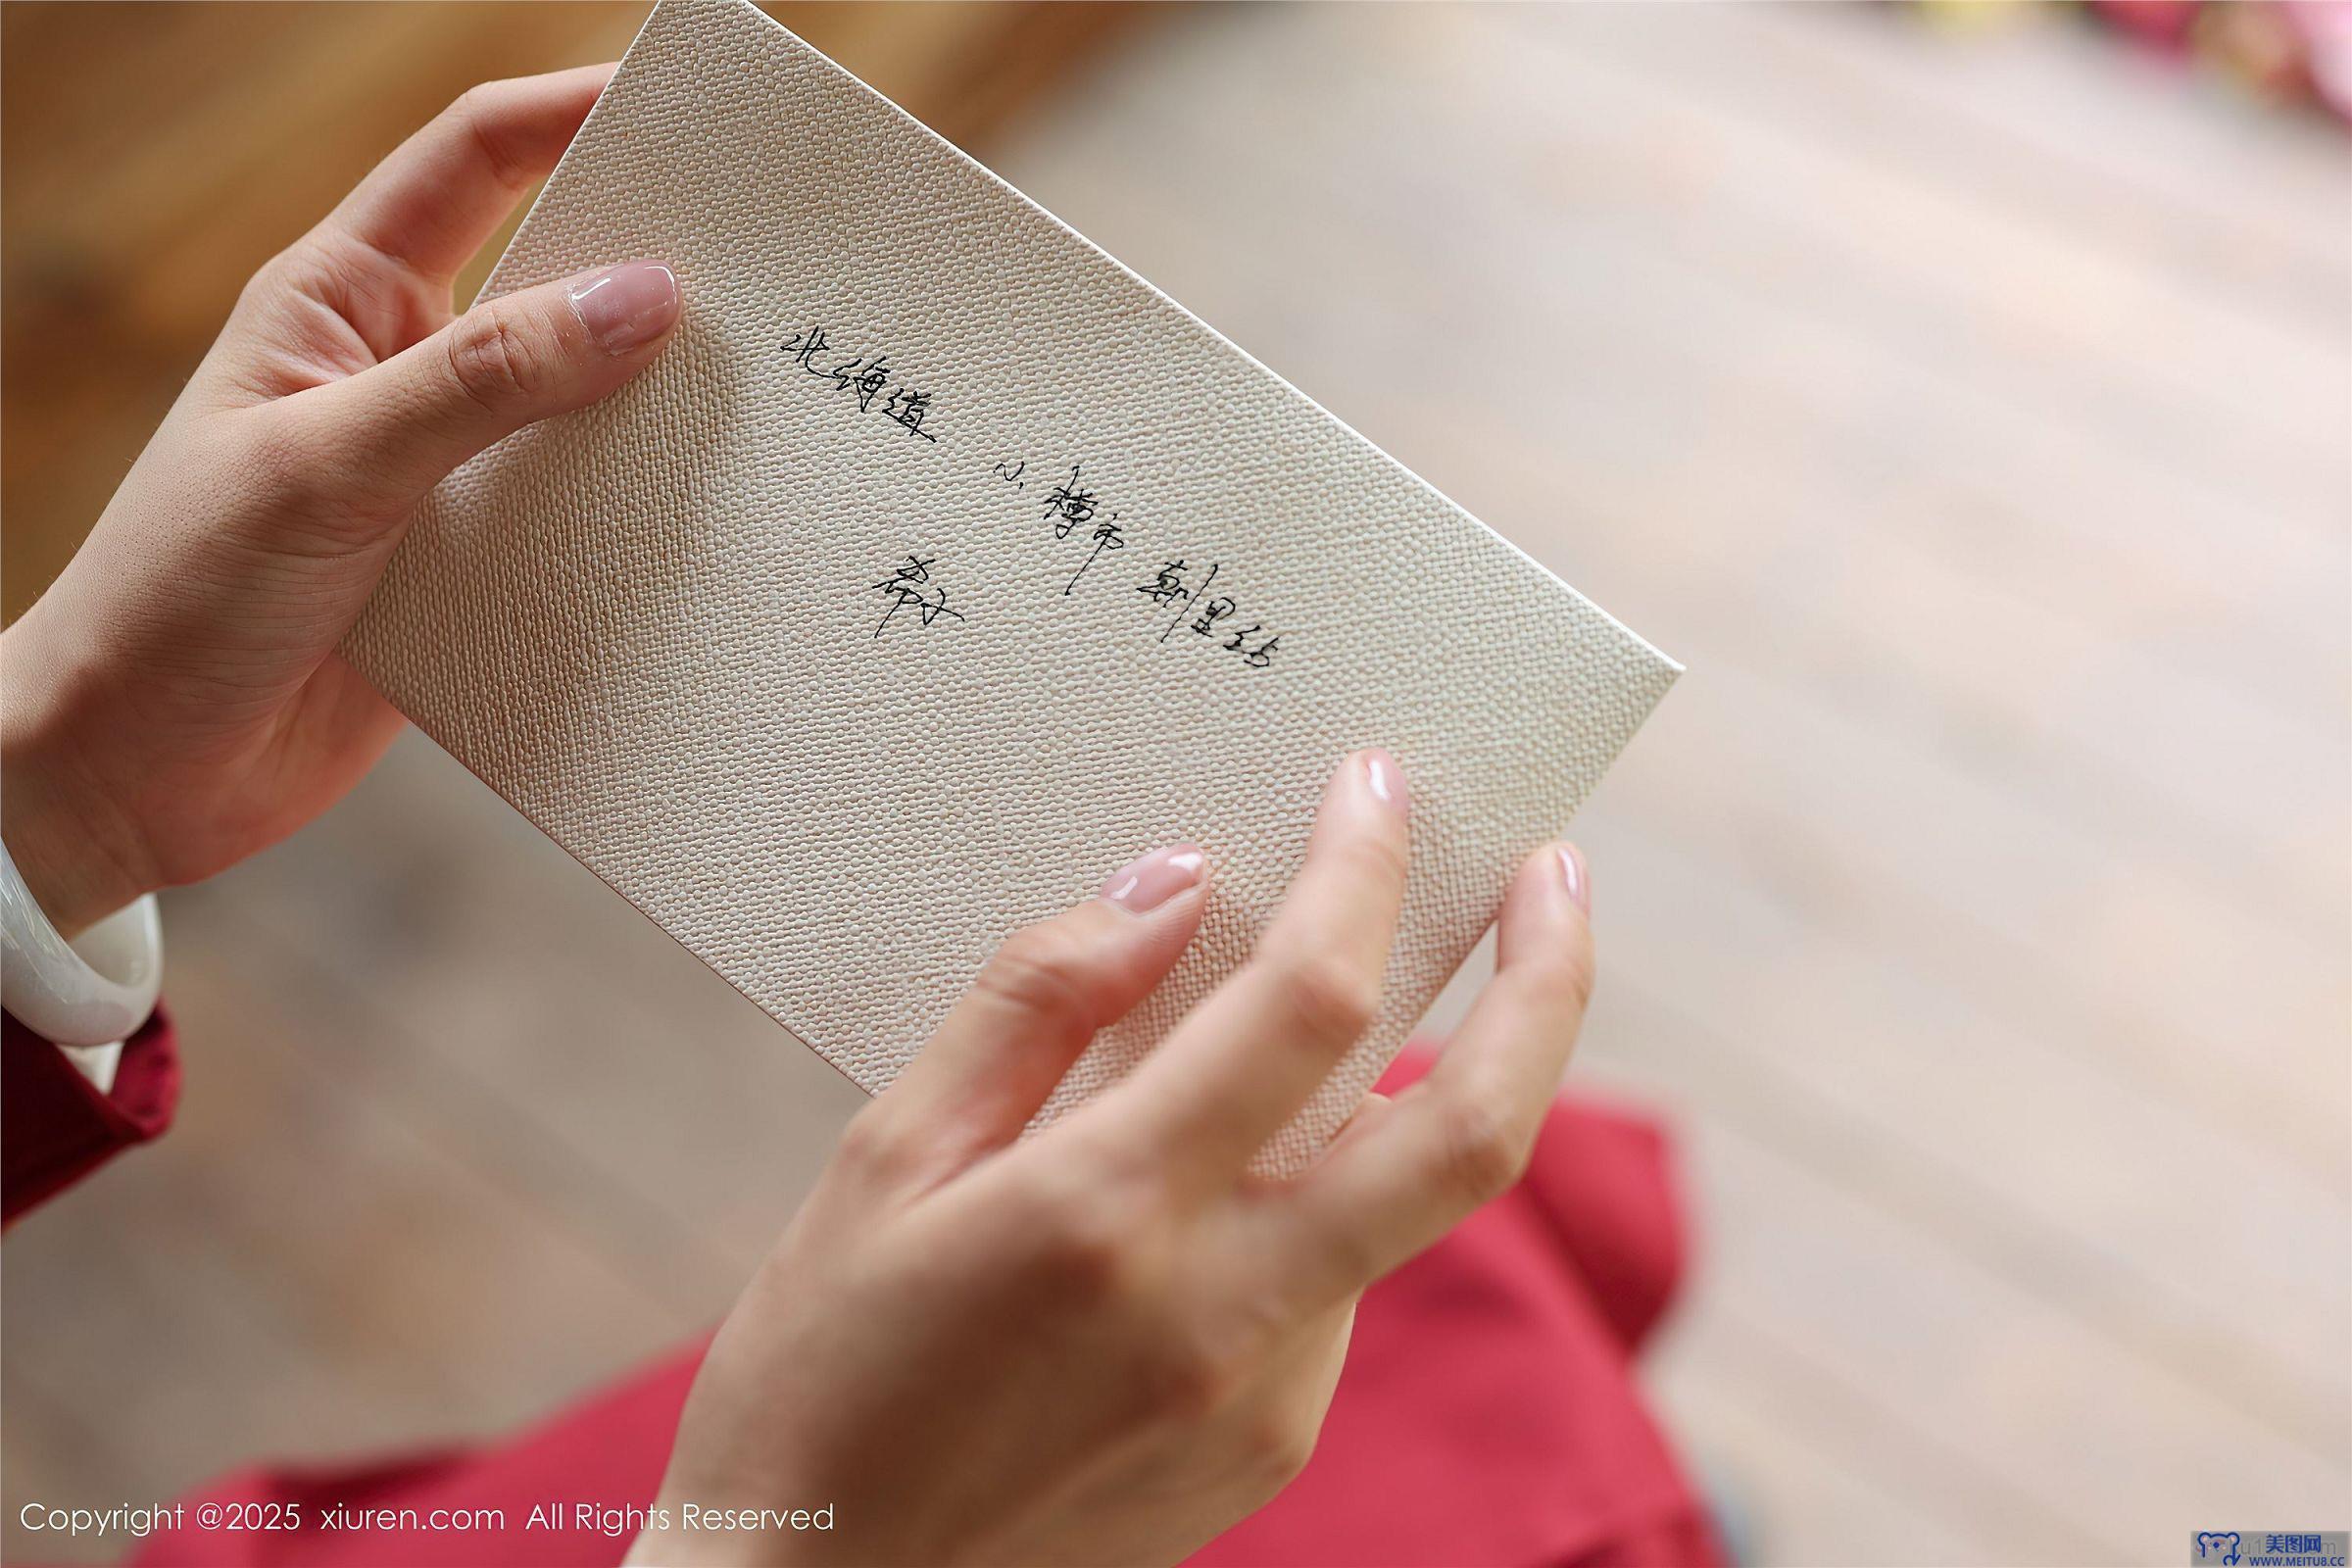 北海道 小樽市 朝里站
希子
Copyright @2025 xiuren.com All Rights Reserved
美图网
WWW.MEITU8.CC